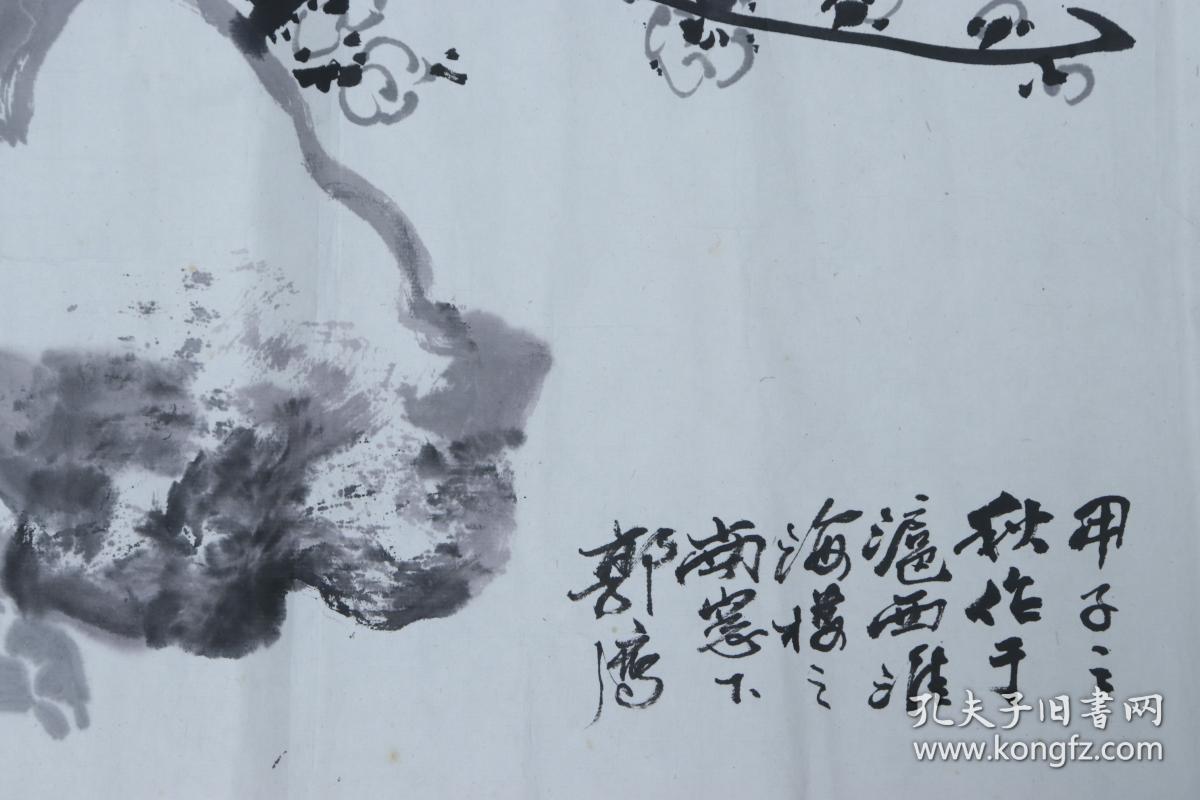 甲子之
秋作于
滬西淮
海楼之
南窓下
郭
孔夫子旧書网
www.kongfz.com